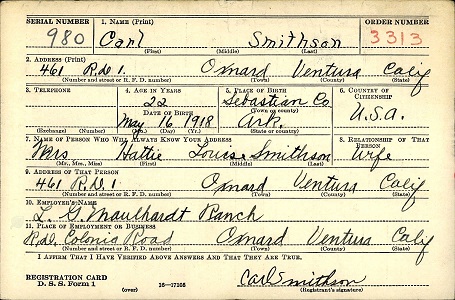 SERIAL NUMBER 1. NAME (Print) ORDER NUMBER
980 Carl Smithson 3313
(First) (Middle) (Last)
2. ADDRESS (Print)
461 R.D 1. Oxnard Ventura Calif
(Number and street or R. F. D. number) (Town) (County) (State)
3. TELEPHONE 4. AGE IN YEARS 5. PLACE OF BIRTH 6. COUNTRY OF CITIZENSHIP
22 Sebastian Co.
(Town or county)
DATE OF BIRTH
May 16 1918 Ark. U.S.A.
(Exchange) (Number) (Mo.) (Day) (Yr.) (State or country)
7. NAME OF PERSON WHO WILL ALWAYS KNOW YOUR ADDRESS 8. RELATIONSHIP OF THAT PERSON
Mrs Hattie Louise Smithson Wife
(Mr., Mrs., Miss) (First) (Middle) (Last)
9. ADDRESS OF THAT PERSON
461 R.D. 1 Oxnard Ventura Calif
(Number and street or R. F. D. number) (Town) (County) (State)
10. EMPLOYER'S NAME
L. G. Maulhardt Ranch
11. PLACE OF EMPLOYMENT OR BUSINESS
R.D. Colonia Road Oxnard Ventura Calif
(Number and street or R. F. D. number) (Town) (County) (State)
I AFFIRM THAT I HAVE VERIFIED ABOVE ANSWERS AND THAT THEY ARE TRUE.
REGISTRATION CARD
D. S. S. Form 1 (over) 16—17105 Carl Smithson
(Registrant's signature)